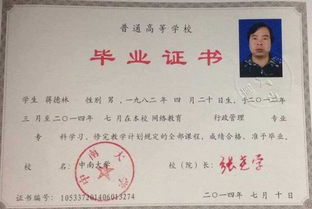 普通高等学校
毕业证书
学生 蒋德林 性别 男，一九八二年 四 月 二十 日生，于二〇一二年
三 月至二〇一四年 七月在本校 网络教育 行政管理 专业
专 科学习，修完教学计划规定的全部课程，成绩合格，准予毕业。
校 名：中南大学 校（院）长：张尧学
中南大学
证书编号：105337201406013274 二〇一四年 七月 十 日